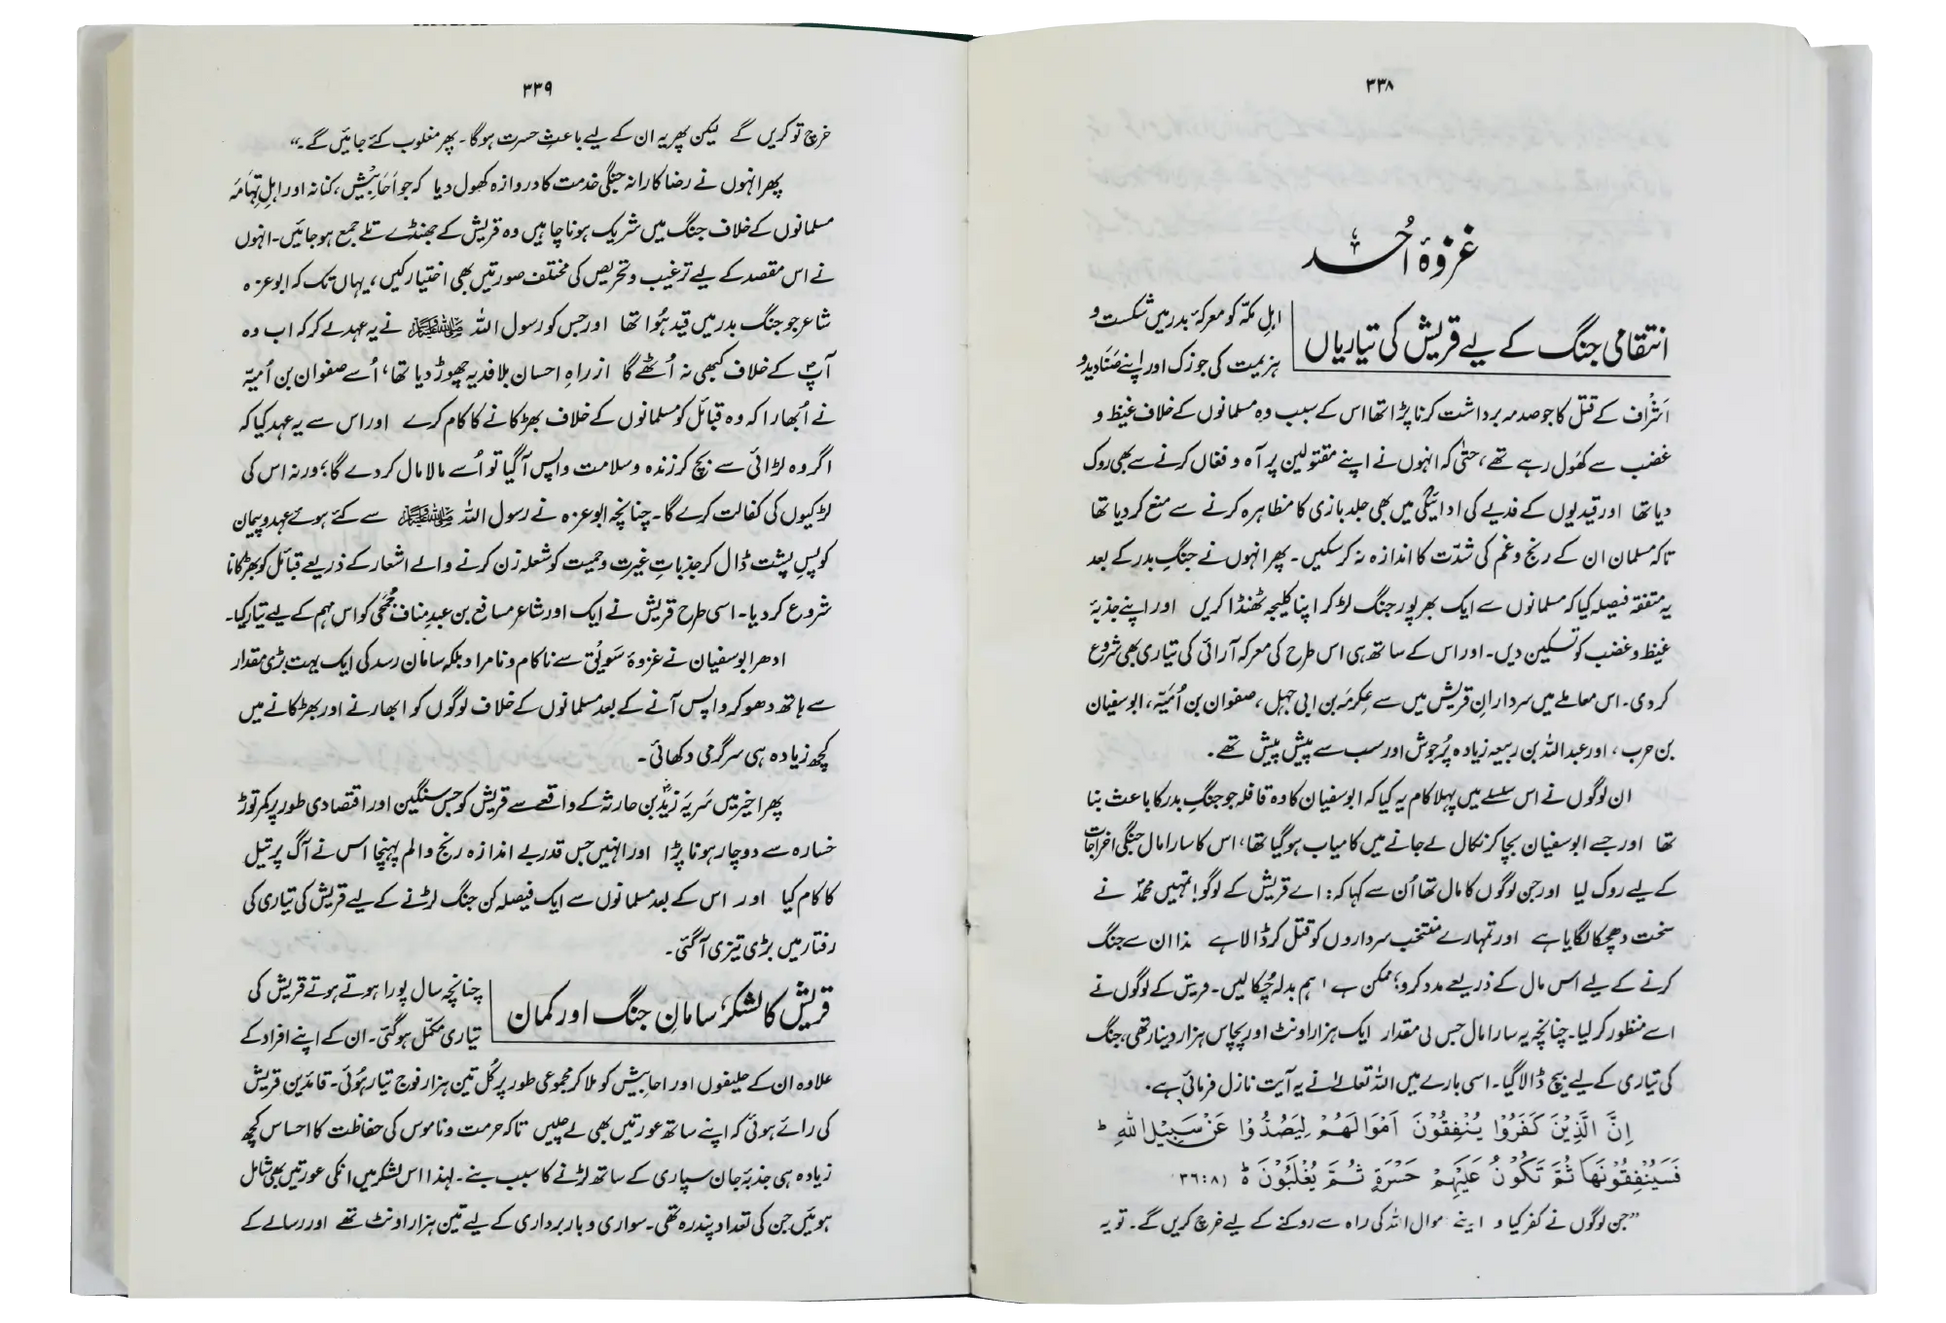 ۳۳۸
غزوۂ اُحد
انتقامی جنگ کے لیے قریش کی تیاریاں
اہلِ مکہ کو معرکۂ بدر میں شکست و
ہزیمت کی جو زک اور اپنے صَنَادِید و
اَشراف کے قتل کا جو صدمہ برداشت کرنا پڑا تھا اس کے سبب وہ مسلمانوں کے خلاف غیظ و
غضب سے کھَول رہے تھے، حتیٰ کہ انہوں نے اپنے مقتولین پر آہ و فغاں کرنے سے بھی روک
دیا تھا اور قیدیوں کے فدیے کی ادائیگی میں بھی جلد بازی کا مظاہرہ کرنے سے منع کر دیا تھا
تاکہ مسلمان ان کے رنج و غم کی شدّت کا اندازہ نہ کر سکیں۔ پھر انہوں نے جنگِ بدر کے بعد
یہ متفقہ فیصلہ کیا کہ مسلمانوں سے ایک بھر پور جنگ لڑ کر اپنا کلیجہ ٹھنڈا کریں اور اپنے جذبۂ
غیظ و غضب کو تسکین دیں۔ اور اس کے ساتھ ہی اس طرح کی معرکہ آرائی کی تیاری بھی شروع
کر دی۔ اس معاملے میں سردارانِ قریش میں سے عِکرمَہ بن ابی جہل، صفوان بن اُمَیّہ، ابو سفیان
بن حرب، اور عبد اللہ بن ربیعہ زیادہ پُر جوش اور سب سے پیش پیش تھے۔
ان لوگوں نے اس سلسلے میں پہلا کام یہ کیا کہ ابو سفیان کا وہ قافلہ جو جنگِ بدر کا باعث بنا
تھا اور جسے ابو سفیان بچا کر نکال لے جانے میں کامیاب ہو گیا تھا، اس کا سارا مال جنگی اخراجات
کے لیے روک لیا اور جن لوگوں کا مال تھا اُن سے کہا کہ: اے قریش کے لوگو! تمہیں محمدؐ نے
سخت دھچکا لگایا ہے اور تمہارے منتخب سرداروں کو قتل کر ڈالا ہے ہذا ان سے جنگ
کرنے کے لیے اس مال کے ذریعے مدد کرو؛ ممکن ہے ہم بدلہ چُکا لیں۔ قریش کے لوگوں نے
اسے منظور کر لیا۔ چنانچہ یہ سارا مال جس کی مقدار ایک ہزار اونٹ اور پچاس ہزار دینار تھی، جنگ
کی تیاری کے لیے بیچ ڈالا گیا۔ اسی بارے میں اللہ تعالےٰ نے یہ آیت نازل فرمائی ہے۔
اِنَّ الَّذِیْنَ کَفَرُوْا یُنْفِقُوْنَ اَمْوَالَهُمْ لِیَصُدُّوْا عَنْ سَبِیْلِ اللّٰهِ ط
فَسَیُنْفِقُوْنَهَا ثُمَّ تَکُوْنُ عَلَیْهِمْ حَسْرَةً ثُمَّ یُغْلَبُوْنَ ط (۸:۳۶
”جن لوگوں نے کفر کیا و اپنے موال اللہ کی راہ سے روکنے کے لیے خرچ کریں گے۔ تو یہ
۳۳۹
خرچ تو کریں گے لیکن پھر یہ ان کے لیے باعثِ حسرت ہوگا۔ پھر مغلوب کئے جائیں گے۔“
پھر انہوں نے رضا کارانہ جنگی خدمت کا دروازہ کھول دیا کہ جو اَحَابِیْش، کنانہ اور اہلِ تِہَامَہ
مسلمانوں کے خلاف جنگ میں شریک ہونا چاہیں وہ قریش کے جھنڈے تلے جمع ہو جائیں۔ انہوں
نے اس مقصد کے لیے ترغیب و تحریص کی مختلف صورتیں بھی اختیار کیں، یہاں تک کہ ابو عزہ
شاعر جو جنگ بدر میں قید ہُوا تھا اور جس کو رسول اللہ ﷺ نے یہ عہد لے کر کہ اب وہ
آپؐ کے خلاف کبھی نہ اُٹھے گا ازراہِ احسان بلا فدیہ چھوڑ دیا تھا، اُسے صفوان بن اُمیّہ
نے اُبھارا کہ وہ قبائل کو مسلمانوں کے خلاف بھڑکانے کا کام کرے اور اس سے یہ عہد کیا کہ
اگر وہ لڑائی سے بچ کر زندہ و سلامت واپس آ گیا تو اُسے مالا مال کر دے گا؛ ورنہ اس کی
لڑکیوں کی کفالت کرے گا۔ چنانچہ ابو عزہ نے رسول اللہ ﷺ سے کئے ہوئے عہد و پیمان
کو پسِ پشت ڈال کر جذباتِ غیرت و حمیت کو شعلہ زن کرنے والے اشعار کے ذریعے قبائل کو بھڑکانا
شروع کر دیا۔ اسی طرح قریش نے ایک اور شاعر مسافع بن عبدِ مناف جُمَحِی کو اس مہم کے لیے تیار کیا۔
ادھر ابو سفیان نے غزوۂ سَوِیْق سے ناکام و نامراد بلکہ سامانِ رسد کی ایک بہت بڑی مقدار
سے ہاتھ دھو کر واپس آنے کے بعد مسلمانوں کے خلاف لوگوں کو ابھارنے اور بھڑکانے میں
کچھ زیادہ ہی سرگرمی دکھائی۔
پھر اخیر میں سَرِیَہ زیدؓ بن حارثہ کے واقعے سے قریش کو جس سنگین اور اقتصادی طور پر کمر توڑ
خسارہ سے دوچار ہونا پڑا اور انہیں جس قدر بے اندازہ رنج و الم پہنچا اس نے آگ پر تیل
کا کام کیا اور اس کے بعد مسلمانوں سے ایک فیصلہ کن جنگ لڑنے کے لیے قریش کی تیاری کی
رفتار میں بڑی تیزی آ گئی۔
قریش کا لشکر، سامانِ جنگ اور کمان
چنانچہ سال پورا ہوتے ہوتے قریش کی
تیاری مکمّل ہو گئی۔ ان کے اپنے افراد کے
علاوہ ان کے حلیفوں اور احابیش کو ملا کر مجموعی طور پر کُل تین ہزار فوج تیار ہُوئی۔ قائدین قریش
کی رائے ہوئی کہ اپنے ساتھ عورتیں بھی لے چلیں تاکہ حرمت و ناموس کی حفاظت کا احساس کچھ
زیادہ ہی جذبۂ جان سپاری کے ساتھ لڑنے کا سبب بنے۔ لہٰذا اس لشکر میں انکی عورتیں بھی شامل
ہوئیں جن کی تعداد پندرہ تھی۔ سواری و بار برداری کے لیے تین ہزار اونٹ تھے اور رسالے کے